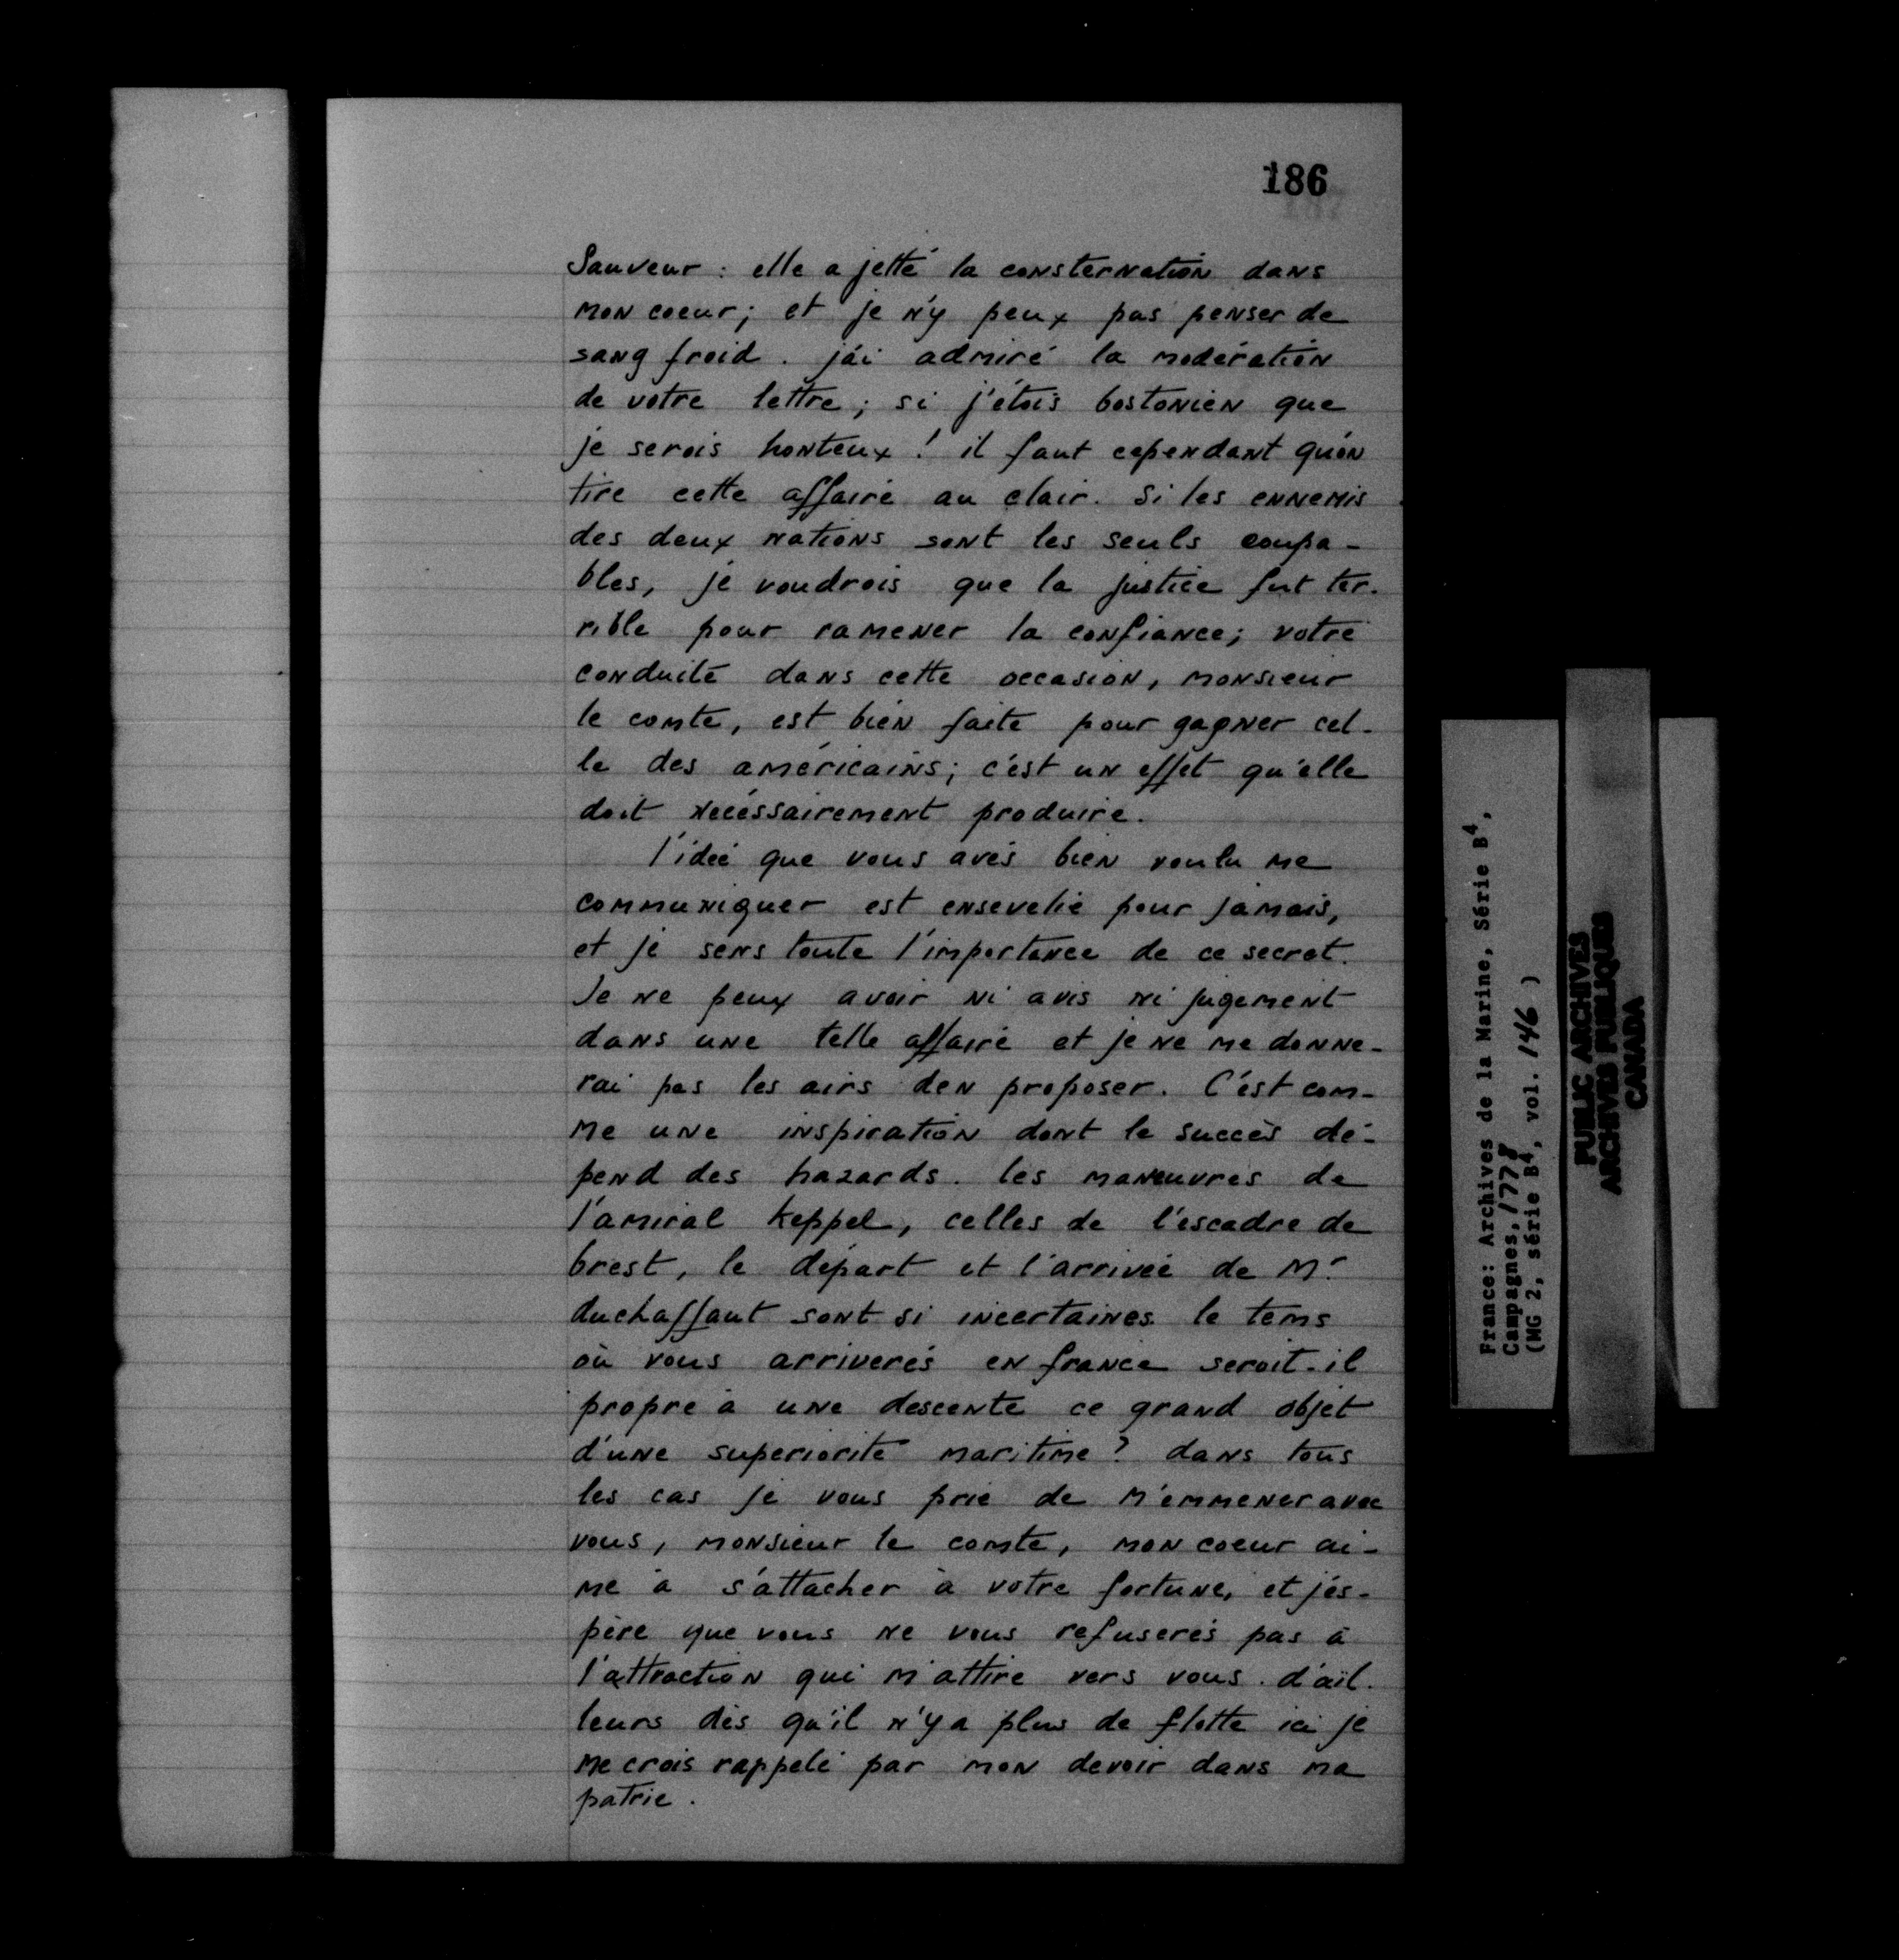 186
Sauveur : elle a jetté la consternation dans
mon coeur; et je n'y peux pas penser de
sang froid. j'ai admiré la modération
de votre lettre; si j'étois bostonien que
je serois honteux! il faut cependant qu'on
tire cette affaire au clair. Si les ennemis
des deux nations sont les seuls coupa-
bles, je voudrois que la justice fut ter-
rible pour ramener la confiance; votre
conduite dans cette occasion, monsieur
le comte, est bien faite pour gagner cel-
le des américains; c'est un effet qu'elle
doit necéssairement produire.
l'idée que vous avés bien voulu me
communiquer est ensevelie pour jamais,
et je sens toute l'importance de ce secret.
Je ne peux avoir ni avis ni jugement
dans une telle affaire et je ne me donne-
rai pas les airs den proposer. C'est com-
me une inspiration dont le succès dé-
pend des hazards. les maneuvres de
l'amiral Keppel, celles de l'escadre de
brest, le départ et l'arrivée de Mr
duchaffaut sont si incertaines. le tems
où vous arriverés en france seroit-il
propre à une descente ce grand objet
d'une superiorité maritime? dans tous
les cas je vous prie de m'emmener avec
vous, monsieur le comte, mon coeur ai-
me à s'attacher à votre fortune, et j'es-
père que vous ne vous refuserés pas à
l'attraction qui m'attire vers vous. d'ail-
leurs dès qu'il n'y a plus de flotte ici je
me crois rappelé par mon devoir dans ma
patrie.
France: Archives de la Marine, Série B4,
Campagnes, 1778
(MG 2, série B4, vol. 146 )
PUBLIC ARCHIVES
ARCHIVES PUBLIQUES
CANADA